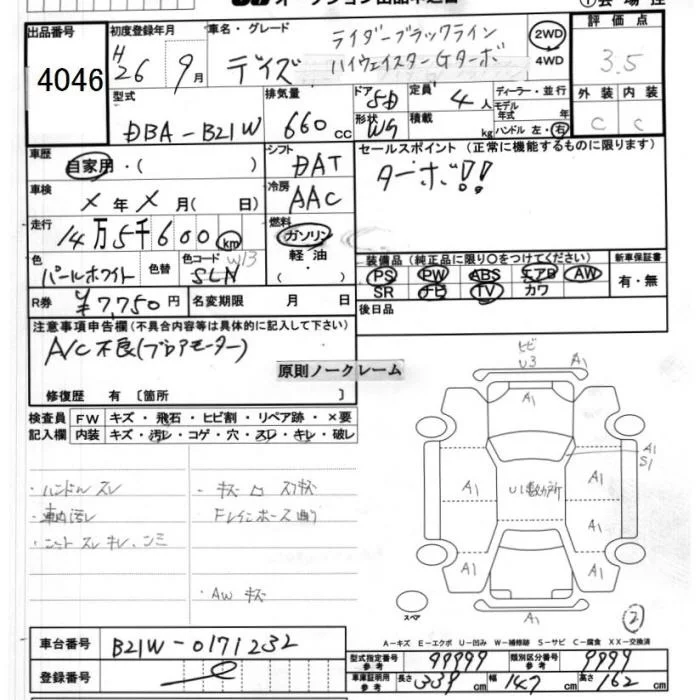 出品番号
4046
初度登録年月
H26年 9月
車名・グレード
デイズ
ライダーブラックライン
ハイウェイスターGターボ
2WD
4WD
評価点
3.5
外装 内装
C C
型式
DBA-B21W
排気量
660 cc
ドア 5D
形状 WG
定員 4人
積載 kg
ディーラー・並行
モデル年式 年
ハンドル 左・右
車歴
自家用・( )
シフト
DAT
セールスポイント (正常に機能するものに限ります)
ターボ!!
車検
X年X月( 日)
冷房
AAC
走行
14万5千600km
燃料
ガソリン
軽油
( ・ )
色
パールホワイト
色替
色コード W13
SLN
装備品 (純正品に限り○をつけてください)
PS PW ABS エアB AW
SR ナビ TV カワ
新車保証書
有・無
R券 ¥7,750円
名変期限 月 日
後日品
注意事項申告欄(不具合内容等は具体的に記入して下さい)
A/C不良(ブロアモーター)
原則ノークレーム
修復歴 有〔箇所 〕
検査員記入欄
FW キズ・飛石・ヒビ割・リペア跡・×要
内装 キズ・汚レ・コゲ・穴・スレ・キレ・破レ
・ハンドルスレ
・車内汚レ
・シートスレ キレ、シミ
・キズ ロ スリキズ
・AW キズ
ヒビ
U3 A1
A1
A1
S1
A1
U1数カ所
A1
A1
A1
A1
スペア
②
A-キズ E-エクボ U-凹み W-補修跡 S-サビ C-腐食 XX-交換済
車台番号
B21W-0171232
登録番号
型式指定番号 参考 99999
類別区分番号 参考 9999
車庫証明用 参考
長さ 339cm 幅 147cm 高さ 162cm